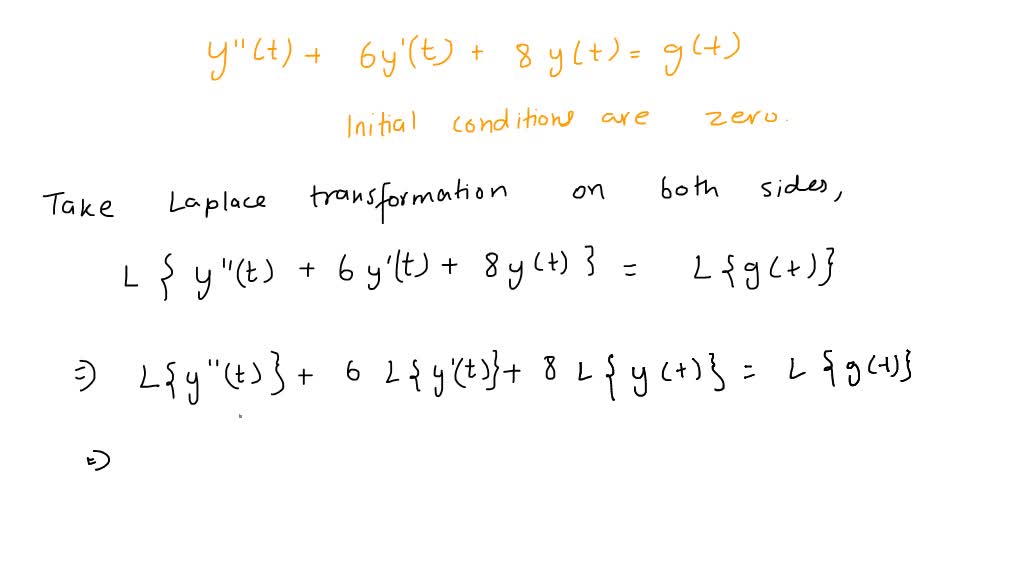 y''(t) + 6y'(t) + 8 y(t) = g(t)
Initial conditions are zero.
Take Laplace transformation on both sides,
L { y''(t) + 6 y'(t) + 8 y(t) } = L{g(t)}
⇒ L{y''(t)} + 6 L{y'(t)} + 8 L{ y(t)} = L {g(t)}
⇒